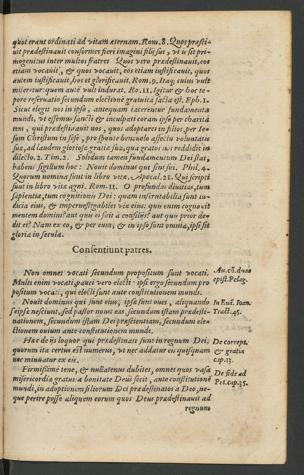 quot erant ordinati ad vitam æternam. Rom. 8. Quos præsci-
uit prædestinauit conformes fieri imagini filij sui, vt sit pri-
mogenitus inter multos fratres. Quos vero prædestinauit, eos
etiam vocauit, & quos vocauit, eos etiam iustificauit, quos
autem iustificauit, hos et glorificauit. Rom. 9. Itaq; cuius vult
miseretur: quem autē vult indurat. Ro. 11. Igitur & hoc te-
pore reseruatio secundum electionē gratuitā facta est. Eph. 1.
Sicut elegit nos in ipso, antequam iacerentur fundamenta
mundi, vt essemus sancti & inculpati coram ipso per charitā
tem, qui prædestinauit nos, quos adoptaret in filios, per Ie-
sum Christum in sese, pro suone beneuolo affectu voluntatis
suæ, ad laudem gloriosæ gratiæ suæ, qua gratos nos reddidit in
dilecto. 2. Tim. 2. Solidum tamen fundamentum Dei stat,
habens sigillum hoc: Nouit dominus qui sint sui. Phil. 4.
Quorum nomina sunt in libro vitæ. Apocal. 21. Qui scripti
sunt in libro vitæ agni. Rom. 11. O profundas diuitias, tum
sapientiæ, tum cognitionis Dei: quam inscrutabilia sunt iu-
dicia eius, & imperuestigabiles viæ eius; quis enim cognouit
mentem domini? aut quis ei fuit a consilijs? aut quis prior de-
dit ei? Nam ex eo, & per eum, & in ipso sunt omnia, ipsi sit
gloria in secula.
Consentiunt patres.
Non omnes vocati secundum propositum sunt vocati.
Multi enim vocati, pauci vero electi: ipsi ergo secundum pro
positum vocati, qui electi sunt ante constitutionem mundi.
Au. cō. duas
epist. Pelag.
Nouit dominus qui sunt eius, ipsæ sunt oues, aliquando
seipsæ nesciunt, sed pastor nouit eas, secundum istam prædesti-
nationem, secundum istam Dei præscientiam, secundum ele-
ctionem ouium ante constitutionem mundi.
In Euā. Ioan.
Tract. 45.
Hæc de ijs loquor qui prædestinati sunt in regnum Dei;
quorum ita certus est numerus, vt nec addatur eis quisquam
nec minuatur ex eis.
De corrept.
& gratia
cap. 13.
Firmissime tene, & nullatenus dubites, omnes quos vasa
misericordiæ gratuita bonitate Deus fecit, ante constitutionē
mundi, in adoptionem filiorum Dei prædestinatos a Deo, ne-
que perire posse aliquem eorum quos Deus prædestinauit ad
De fide ad
Pet. cap. 35.
regnum